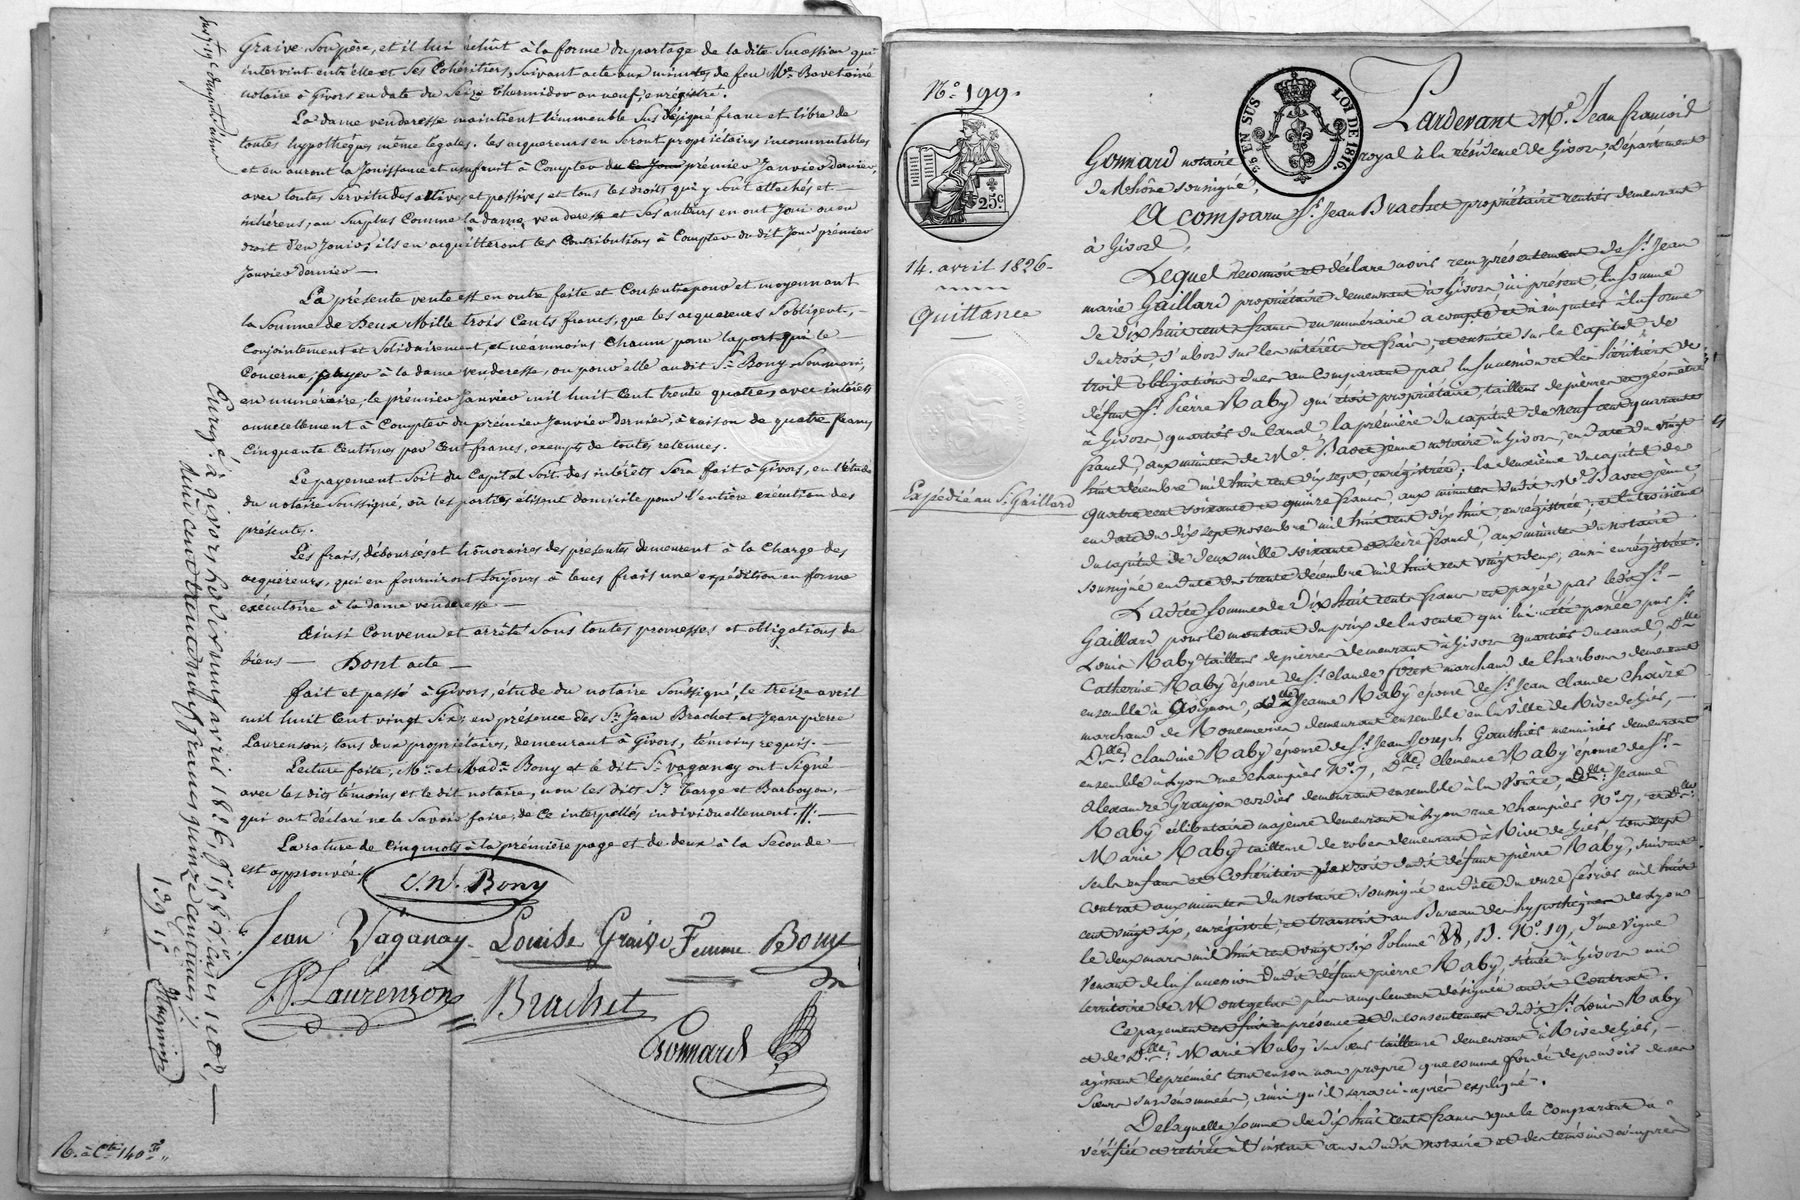 Graive Son père, et il lui échût à la forme du partage de la dite Succession qui
intervint entr'elle et Ses Cohéritiers, Suivant acte aux minutes de feu Me. Bavet ainé
notaire à Givors en date du Seize thermidor an neuf, enregistré.
La dame venderesse maintient l'immeuble Sus désigné franc et libre de
toutes hypothèques même légales. les acquereurs en Seront propriétaires incommutables
et en auront la Jouissance et usufruit à Compter du ce Jour prémier Janvier dernier,
avec toutes Servitudes actives et passives et tous les droits qui y Sont attachés et
inhérens, au Surplus Comme la dame venderesse et Ses auteurs en ont Joui ou eu
droit d'en Jouir; ils en acquitteront les Contributions à Compter du dit Jour prémier
Janvier dernier —
La présente vente est en outre faite et Consentie pour et moyennant
la Somme de Deux Mille trois Cents francs, que les acquereurs S'obligent,
Conjointement et Solidairement, et néanmoins Chacun pour la part qui le
Concerne, payer à la dame venderesse, ou pour elle audit Sr. Bony Son mari,
en numéraire, le prémier Janvier mil huit Cent trente quatre, avec intérêts
annuellement à Compter du prémier Janvier dernier, à raison de quatre francs
Cinquante Centimes par Cent francs, exempts de toutes retenues.
Le payement Soit du Capital Soit des intérêts Sera fait à Givors, en l'étude
du notaire Soussigné, où les parties élisent domicile pour l'entière exécution des
présentes.
Les frais, déboursés et honoraires des présentes demeurent à la Charge des
acquéreurs, qui en fourniront toujours à leurs frais une expédition en forme
exécutoire à la dame venderesse —
Ainsi Convenu et arrêté Sous toutes promesses et obligations de
biens — Dont acte —
fait et passé à Givors, étude du notaire Soussigné, le treize avril
mil huit Cent vingt Six, en présence des Srs. Jean Brachet et Jean pierre
Laurenson, tous deux propriétaires, demeurant à Givors, témoins requis. —
Lecture faite, Mr. et Made. Bony et le dit Sr. Vaganay ont Signé
avec les dits témoins et le dit notaire, non les dits Srs. Targe et Barboyon,
qui ont déclaré ne le Savoir faire, de Ce interpellés individuellement. —
La rature de Cinq mots à la prémière page et de deux à la Seconde
est approuvée.
Bony
Jean Vaganay Louise Graive Femme Bony
JP Laurenson Brachet
Gomard
Enregé. à givors le dix neuf avril 1826, fo. 15
Reçu cent trente neuf francs quinze centimes
139 f 15 c
Magnin
R. à Cte 140 f
No. 199.
25 EN SUS LOI DE 1816.
25 c.
14. avril 1826.
Quittance
Expédié au Sr. Gaillard
Pardevant Me. Jean François
Gomard notaire royal à la résidence de Givors, Département
du Rhône soussigné,
A comparu Sr. Jean Brachet propriétaire rentier demeurant
à Givors,
Lequel reconnoit et déclare avoir reçu présentement de Sr. Jean
marie Gaillard propriétaire demeurant à Givors ici présent, la somme
de Dix huit cent francs en numéraire a compte et à imputer à la forme
du droit d'abord sur les intérêts et frais, et ensuite sur le capital de
trois obligations dues au Comparant par la succession et les héritiers de
défunt Sr. Pierre Raby qui étoit propriétaire, tailleur de pierres et géomètre
à Givors, quartier du Canal, la première du capital de neuf cent quarante
francs, aux minutes de Me. Bavet jeune notaire à Givors, en date du vingt
huit décembre mil huit cent dix sept, enregistrée; la deuxième du capital de
quatre cent soixante et quinze francs, aux minutes dudit Me. Bavet jeune
en date du dix sept novembre mil huit cent dix huit, enregistrée; et la troisième
du capital de deux mille soixante et seize francs, aux minutes du notaire
soussigné en date du trente décembre mil huit cent vingt deux, aussi enregistrée.
Ladite Somme de Dix huit cents francs est payée par ledit Sr.
Gaillard pour le montant du prix de la vente qui lui a été passée par Sr.
Louis Raby tailleur de pierres demeurant à Givors quartier du canal, Dlle.
Catherine Raby épouse de Sr. Claude foret marchand de Charbons demeurant
ensemble à Avignon, Dlle. Jeanne Raby épouse de Sr. Jean Claude Choire
marchand de Rouennerie demeurant ensemble en la ville de Rive de Gier,
Dlle. Claudine Raby épouse de Sr. Jean Joseph Gauthier menuisier demeurant
ensemble à Lyon rue Champier No. 7, Dlle. Clémence Raby épouse de Sr.
Alexandre Granjon cordier demeurant ensemble à la Voulte, Dlle. Jeanne
Raby célibataire majeure demeurant à Lyon rue champier No. 7, et Dlle.
Marie Raby tailleuse de robes demeurant à Rive de Gier, tous sept
seuls enfans et Cohéritiers de droit dudit défunt pierre Raby, suivant
contrat aux minutes du notaire soussigné en date du onze février mil huit
cent vingt six, enregistré et transcrit au Bureau des hypothèques de Lyon
le deux mars mil huit cent vingt six Volume 88, B. No. 19, d'une vigne
venant de la succession dudit défunt pierre Raby, située à Givors au
territoire de Montgelas plus amplement désignée audit Contrat.
Ce payement est fait en présence et du consentement dudit Sr. Louis Raby
et de Dlle. Marie Raby sa sœur tailleuse demeurant à Rive de Gier,
agissant le premier tant en son nom propre que comme fondé de pouvoir de ses
sœurs susdénommées, ainsi qu'il sera ci-après expliqué.
De laquelle somme de Dix huit cents francs que le comparant a
vérifiée et retirée à l'instant au vu dudit notaire et des témoins ci après